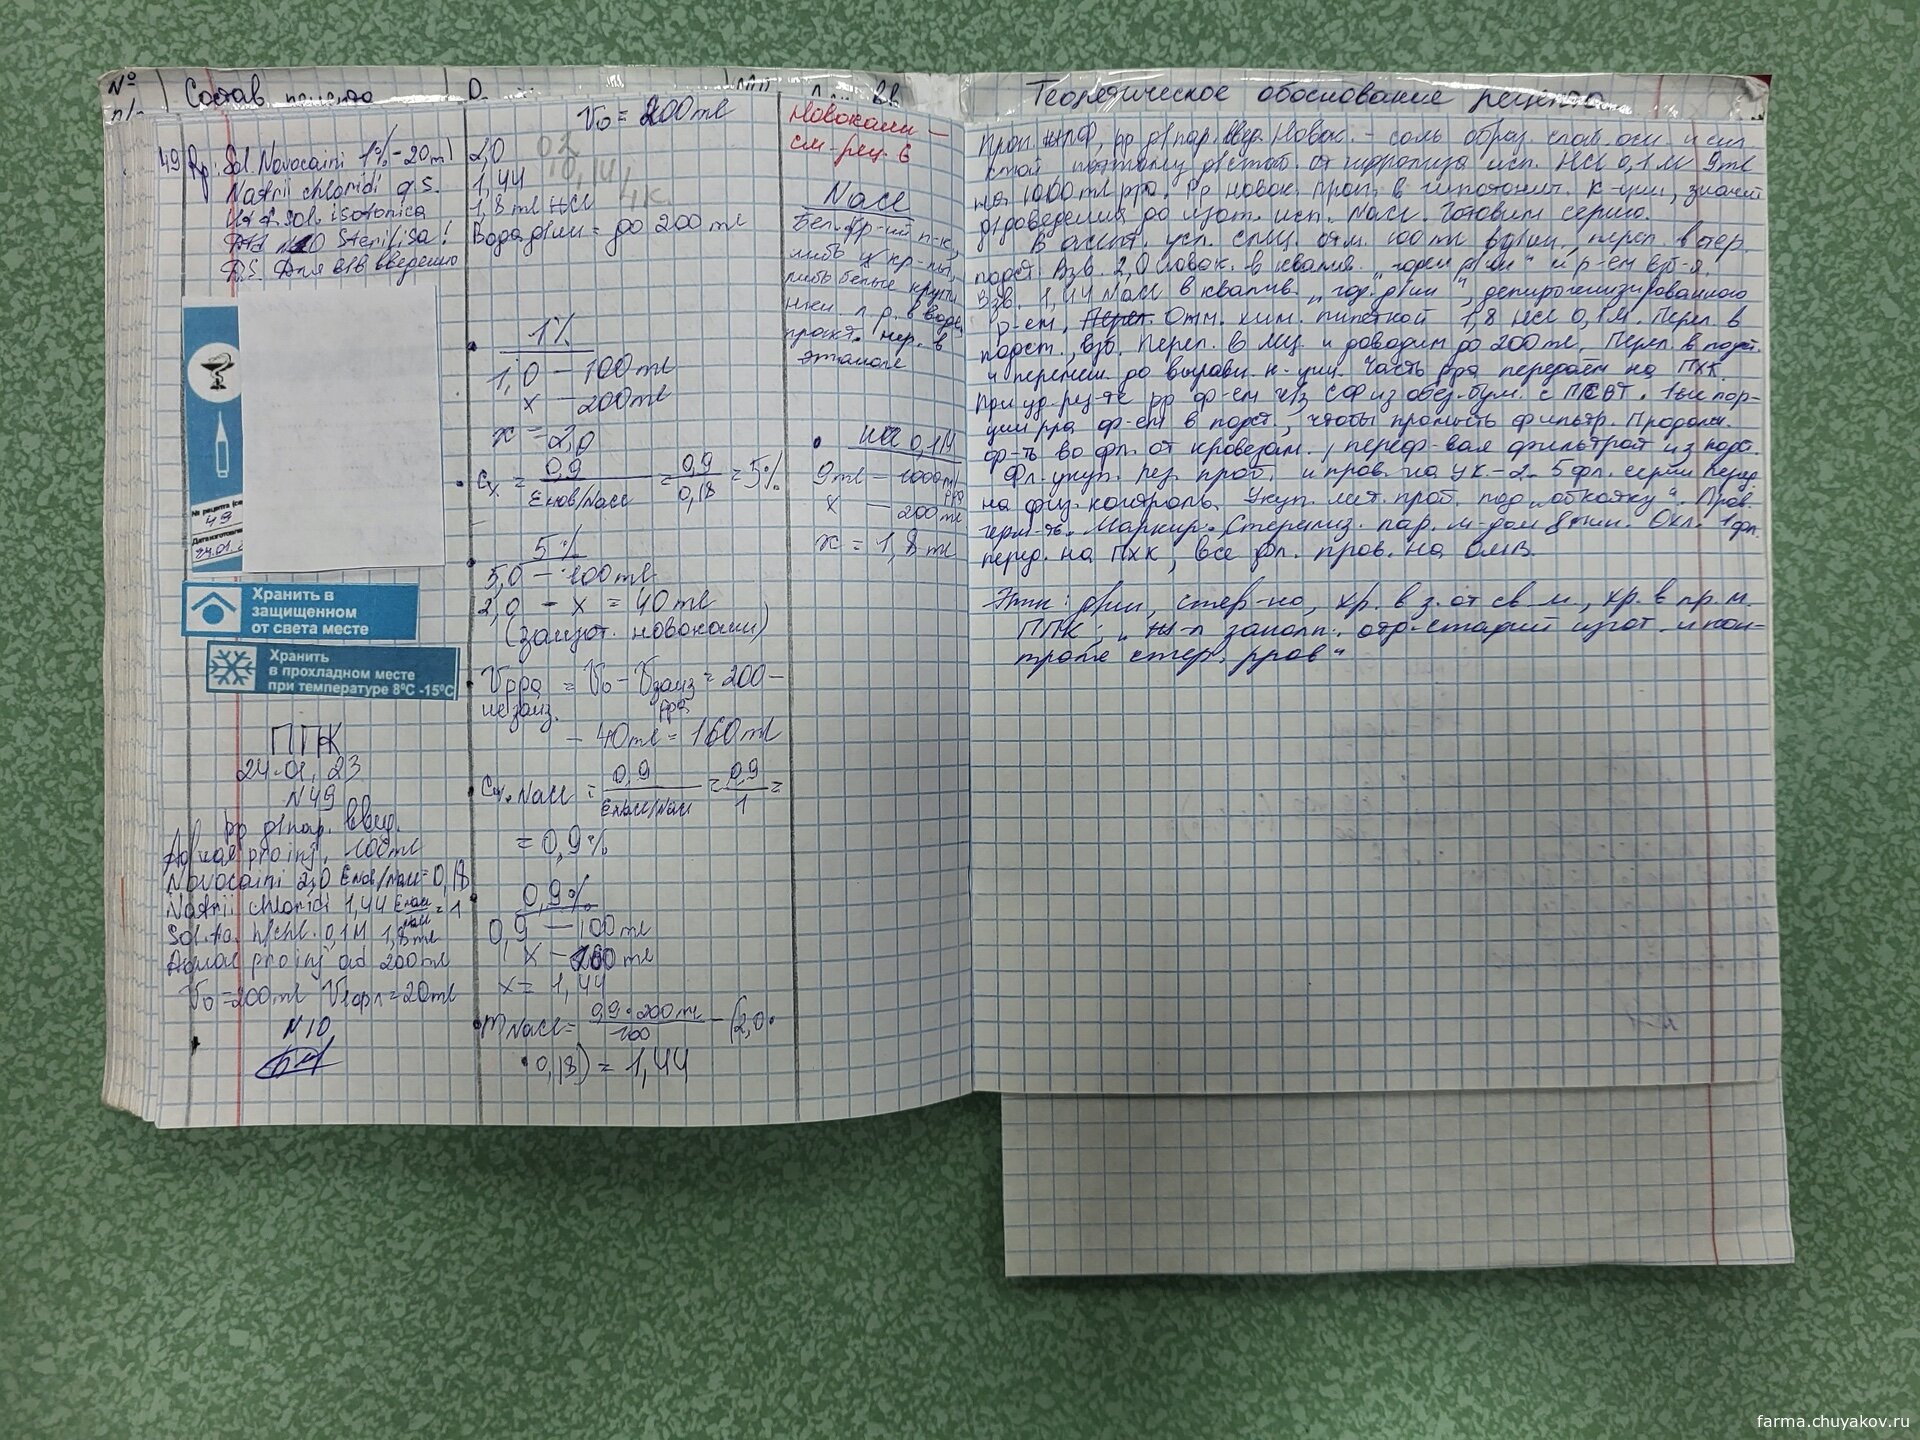 №
п/п
Состав рецепта
Теоретическое обоснование рецепта
V₀ = 200 ml
49 Rp: Sol. Novocaini 1% - 20 ml
Natrii chloridi q.s.
Ut f. sol. isotonica
N 10 Sterilisa!
D.S. Для в/в введения
№ рецепта
49
Дата изготовле
24.01.2
Хранить в
защищенном
от света месте
Хранить
в прохладном месте
при температуре 8°C -15°C
ППК
24.01.23
N 49
рр д/пар. введ.
Aquae pro inj. 100 ml
Novocaini 2,0 Eнов/NaCl = 0,18
Natrii chloridi 1,44 ENaCl/NaCl = 1
0,1М 1,8 ml
Aquae pro inj ad 200 ml
V₀ = 200 ml V1фл = 20 ml
N 10
2,0
1,44
1,8 ml HCl
Вода д/ин = до 200 ml
1%
1,0 — 100 ml
x — 200 ml
x = 2,0
Cх = 0,9 / Eнов/NaCl = 0,9 / 0,18 = 5%
5%
5,0 — 100 ml
2,0 — x = 40 ml
(заизот. новокаин)
Vрра = V₀ - Vзаиз = 200 -
незаиз. рра
- 40 ml = 160 ml
NaCl = 0,9 / ENaCl/NaCl = 0,9 / 1 =
= 0,9%
0,9%
0,9 — 100 ml
x — 160 ml
x = 1,44
m NaCl = 0,9 · 200 ml / 100 - (2,0 ·
· 0,18) = 1,44
Новокаин —
см. рец. 6
NaCl
Бел. кр-ий п-к,
либо ц кр-лы,
либо белые крупи
нки л. р. в воде,
практ. нер. в
этаноле
HCl 0,1М
9 ml — 1000 ml
рра
x — 200 ml
x = 1,8 ml
Проп. ЖЛФ, рр д/пар. введ. Новок. - соль образ. слаб. осн. и сил
к-той поэтому д/стаб. от гидролиза исп. HCl 0,1М 9 ml
на 1000 ml рра. Рр новок. проп. в гипотонич. к-ции, значит
д/доведения до изот. исп. NaCl. Готовим серию.
В асепт. усл. отм. 100 ml вд/ин, переп. в стер.
подст. Взв. 2,0 новок. в квалиф. „годен д/ин" и р-ем взб-я.
Взв. 1,44 NaCl в квалиф. „год. д/ин", депирогенизированного
р-ем. Перел. Отм. хим. пипеткой 1,8 HCl 0,1М. Перел. в
подст., взб. Перел. в МЦ и доводим до 200 ml. Перел. в подст.
и перемеш. до выравн. к-ции. Часть рра передаём на ПХК.
При уд. рез-те рр ф-ем ч/з СФ из обез. бум. с ПСВТ. 1-ые пор-
ции рра ф-ем в подст., чтобы промыть фильтр. Продолж.
ф-ть во фл. от кровезам., переф-вая фильтрат из подст.
Фл. укуп. рез. проб. и пров. на УК-2. 5 фл. серии перед.
на физ. контроль. Укуп. мет. проб. под „обкатку". Пров.
герм-ть. Маркир. Стерилиз. пар. м-дом 8 мин. Охл. 1 фл.
перед. на ПХК, все фл. пров. на ОМВ.
Этик: д/ин, стер-но, хр. в з. от св. м., хр. в пр. м.
ППК; „Ж-л заполн. отр. стадий изгот. и кон-
троля стер. рров"
farma.chuyakov.ru